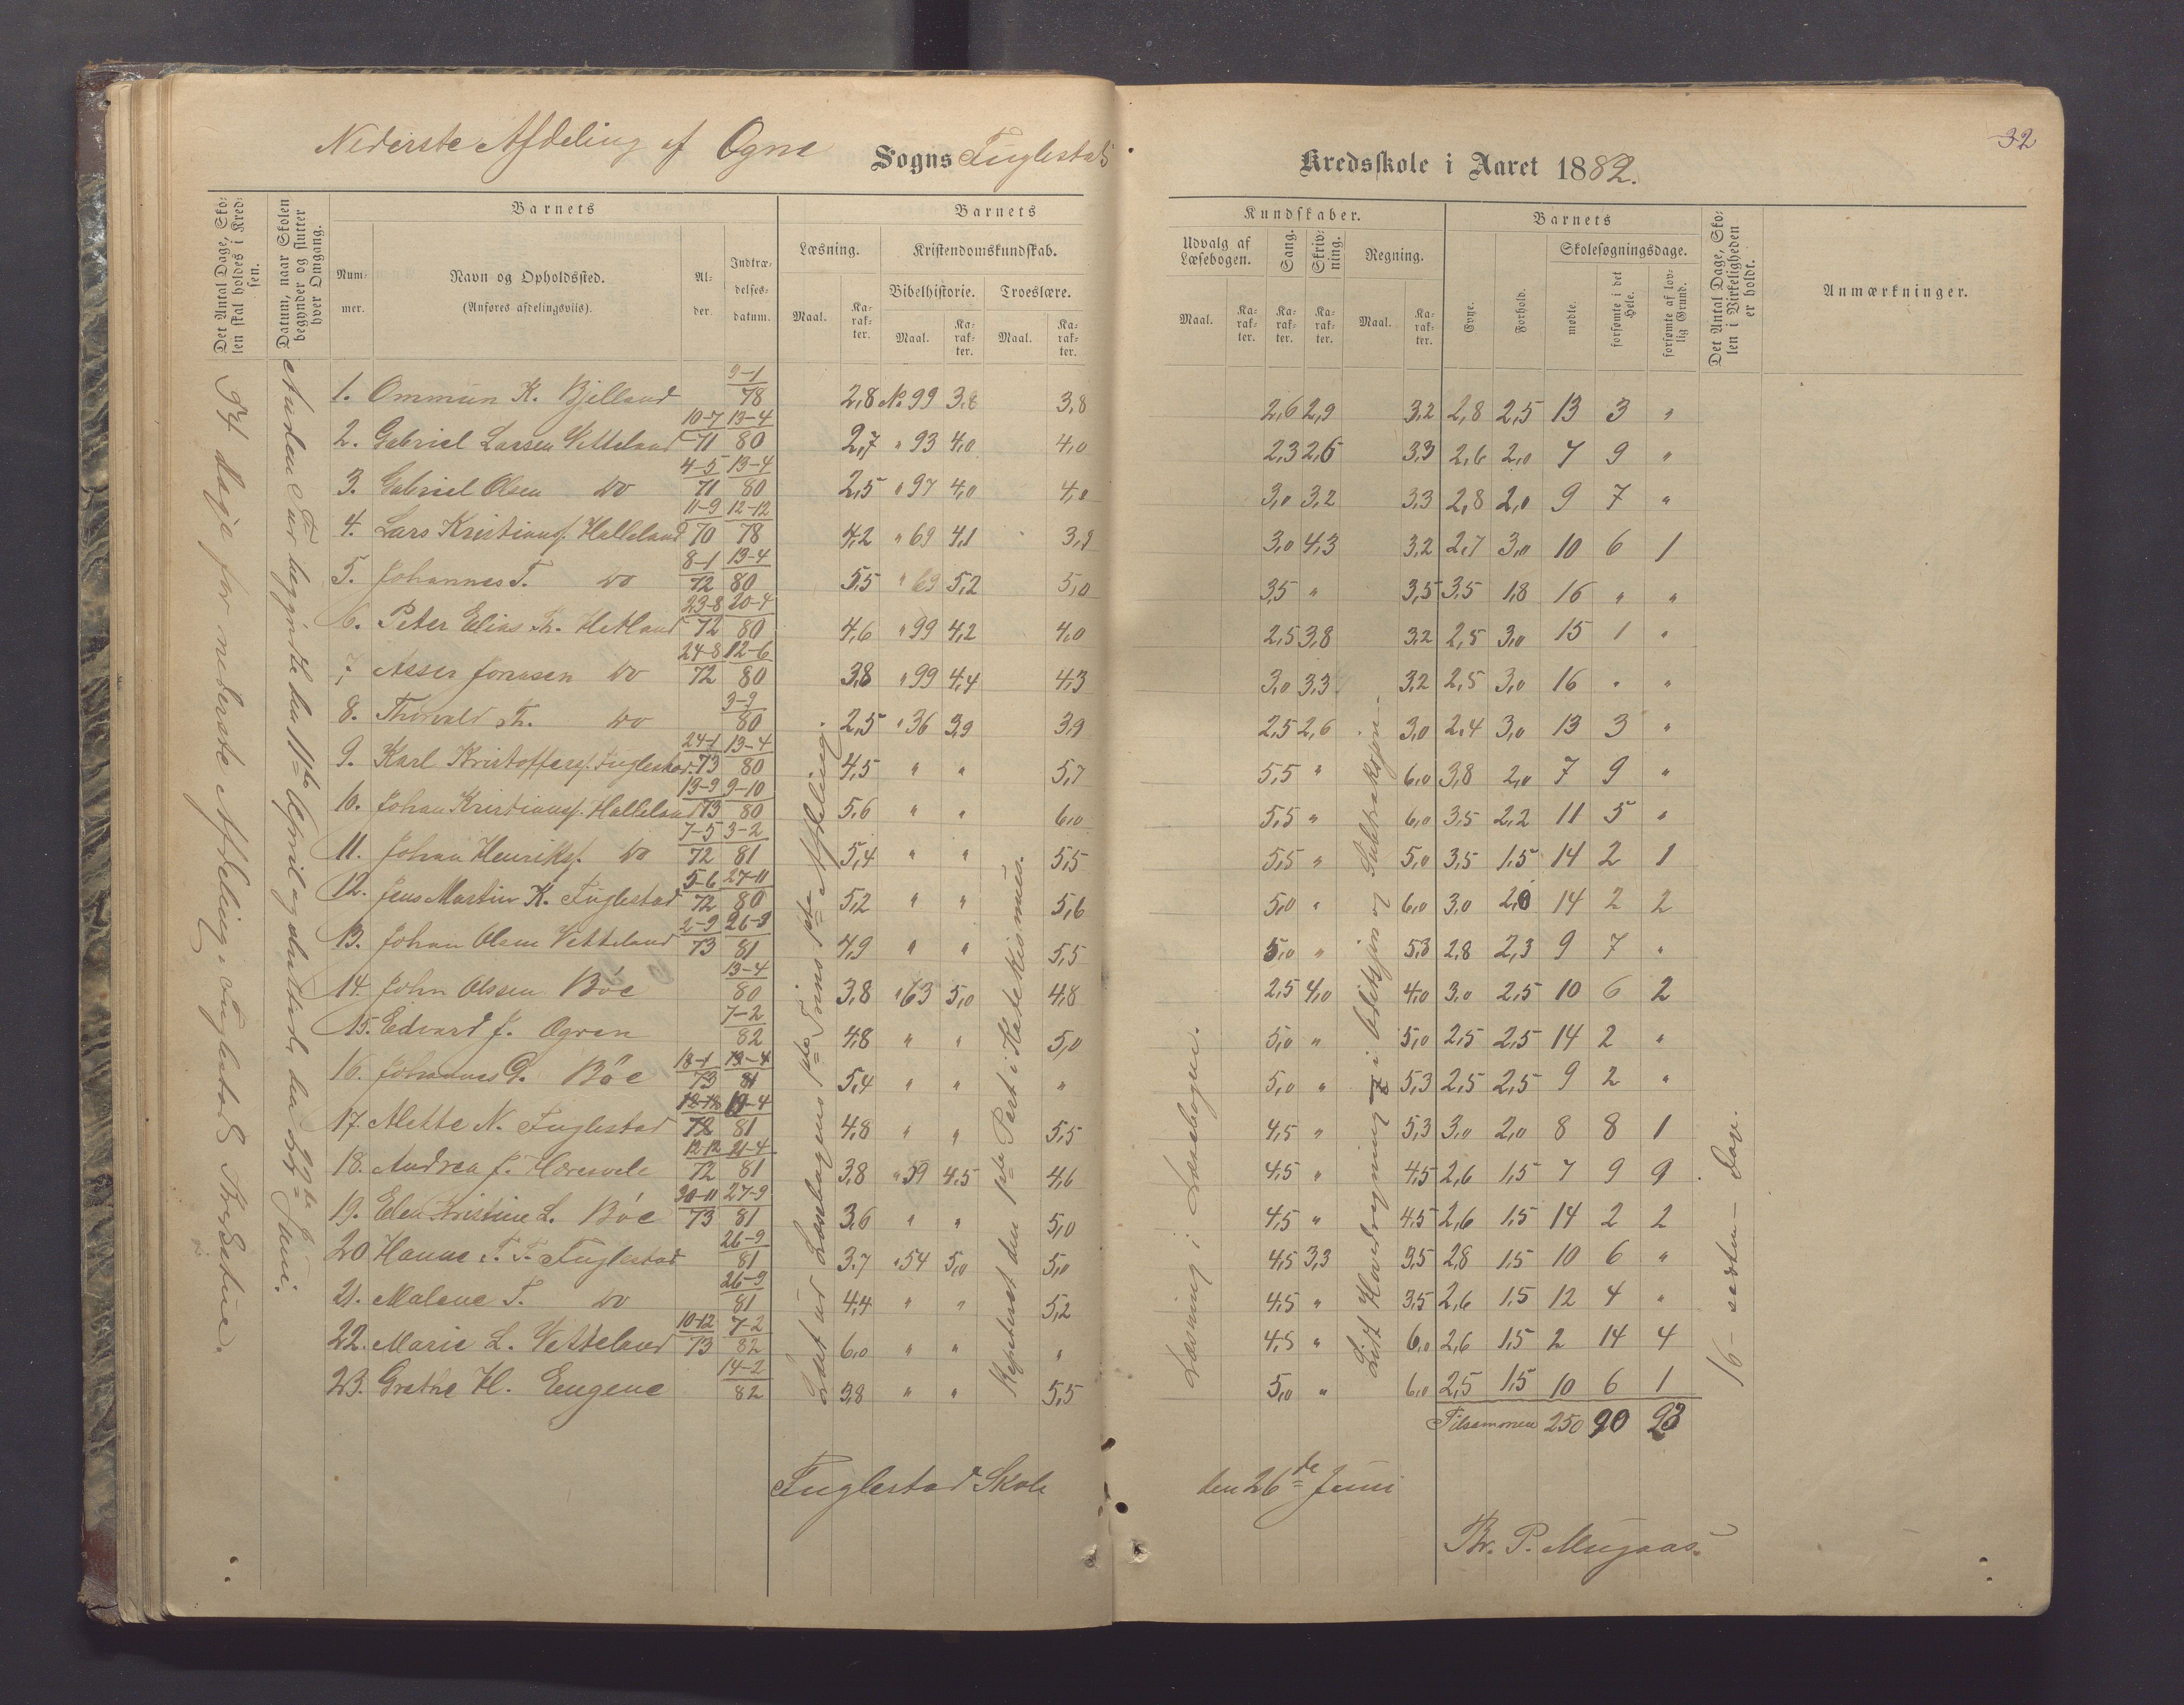 32
Nederste Afdeling af Ogne Sogns Fuglestad Kredsskole i Aaret 1882.
Det Antal Dage, Skolen skal holdes i Kredsen.
Datum, naar Skolen begynder og slutter hver Omgang.
Barnets
Nummer.
Navn og Opholdssted.
(Anføres afdelingsviis).
Alder.
Indtrædelsesdatum.
Barnets Kundskaber.
Læsning.
Maal. Karakter.
Kristendomskundskab.
Bibelhistorie. Troeslære.
Maal. Karakter. Maal. Karakter.
Udvalg af Læsebogen.
Maal. Karakter.
Sang. Karakter.
Skrivning. Karakter.
Regning.
Maal. Karakter.
Barnets
Evne. Forhold.
Skolesøgningsdage.
mødte. forsømte i det Hele. forsømte af lovlig Grund.
Det Antal Dage, Skolen i Virkeligheden er holdt.
Anmærkninger.
1. Ommun K. Bjelland 9-1/78 2,8 No 99 3,8 3,8 2,6 2,9 3,2 2,8 2,5 13 3 "
2. Gabriel Larsen Vetteland 10-7/71 13-4/80 2,7 " 93 4,0 4,0 2,3 2,6 3,3 2,6 2,0 7 9 "
3. Gabriel Olsen do 4-5/71 13-4/80 2,5 " 97 4,0 4,0 3,0 3,2 3,3 2,8 2,0 9 7 "
4. Lars Kristiansf. Halleland 11-9/70 12-12/78 4,2 " 69 4,1 3,9 3,0 4,3 3,2 2,7 3,0 10 6 1
5. Johannes T. do 8-1/72 13-4/80 5,5 " 69 5,2 5,0 3,5 " 3,5 3,5 1,8 16 " "
6. Peter Elias Th. Hetland 23-8/72 20-4/80 4,6 " 99 4,2 4,0 2,5 3,8 3,2 2,5 3,0 15 1 "
7. Asser Jonasen do 24-8/72 12-6/80 3,8 " 99 4,4 4,3 3,0 3,3 3,2 2,5 3,0 16 " "
8. Thorvald Th. do 3-9/80 2,5 " 36 3,9 3,9 2,5 2,6 3,0 2,4 3,0 13 3 "
9. Karl Kristoffersf. Fuglestad 24-1/73 13-4/80 4,5 " " 5,7 5,5 " 6,0 3,8 2,0 7 9 "
10. Johan Kristiansf. Halleland 13-9/73 9-10/80 5,6 " " 6,0 5,5 " 6,0 3,5 2,2 11 5 "
11. Johan Henriksf. do 7-5/72 3-2/81 5,4 " " 5,5 5,5 " 5,0 3,5 1,5 14 2 1
12. Jens Martin K. Fuglestad 5-6/72 27-11/80 5,2 " " 5,6 5,0 " 6,0 3,0 2,0 14 2 2
13. Johan Olsen Vetteland 2-9/73 26-9/81 4,9 " " 5,5 5,0 " 5,3 2,8 2,3 9 7 "
14. John Olssen Böe 13-4/80 3,8 " 63 5,0 4,8 2,5 4,0 4,0 3,0 2,5 10 6 2
15. Edvard J. Ogren 7-2/82 4,8 " " 5,0 5,0 " 5,0 2,5 2,5 14 2 "
16. Johannes G. Böe 18-1/73 13-4/81 5,4 " " " 5,0 " 5,3 2,5 2,5 9 2 "
17. Alette N. Fuglestad 12-12/72 19-4/81 4,8 " " 5,5 4,5 " 5,3 3,0 2,0 8 8 1
18. Andrea J. 12-12/72 21-4/81 3,8 " 59 4,5 4,6 4,5 " 4,5 2,6 1,5 7 9 9
19. Elen Kristine L. Böe 30-11/73 27-9/81 3,6 " " 5,0 4,5 " 4,5 2,6 1,5 14 2 2
20 Hanne T. T. Fuglestad 26-9/81 3,7 " 54 5,0 5,0 4,5 3,3 3,5 2,8 1,5 10 6 "
21. Malene T. do 26-9/81 4,4 " " 5,2 4,5 " 3,5 2,6 1,5 12 4 "
22. Marie L. Vetteland 10-12/73 7-2/82 6,0 " " " 4,5 " 6,0 2,6 1,5 2 14 4
23. Grethe H. Eugene 14-2/82 3,8 " " 5,5 5,0 " 6,0 2,5 1,5 10 6 1
Tilsammen 250 90 23
dage for nederste Afdeling i Fuglestads Kredsstue.
Anden Tur begyndte den 11te April og sluttede den 22de Juni.
Læst ud Læsebogens 1ste Trins 1ste Afdeling.
Repeteret den 1ste Part i Katekismus.
Læsning i Læsebogen.
Lidt Hovedregning i Addisjon og Subtraksjon.
16 - sexten - Dage.
Fuglestad Skole den 26de Juni
Th. P. Mugaas.